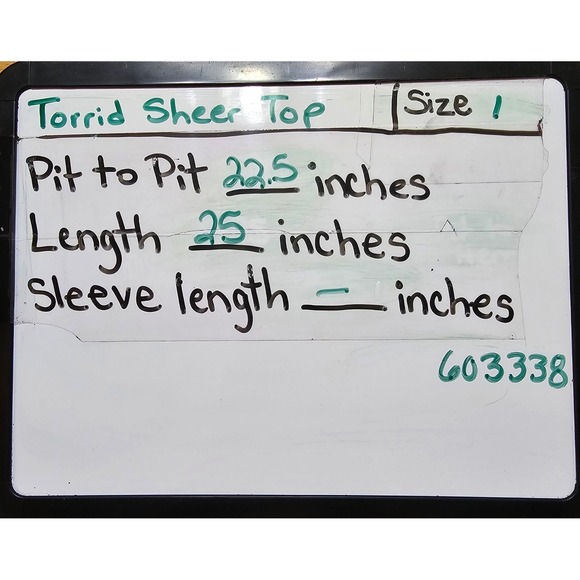 Torrid Sheer Top | Size 1
Pit to Pit 22.5 inches
Length 25 inches
Sleeve length - inches
603338